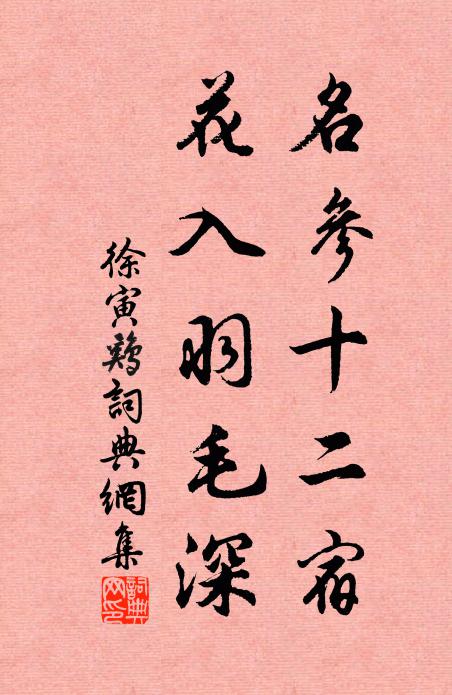 名參十二宿
花入羽毛深
徐寅鷄詞典網集
詞典网印